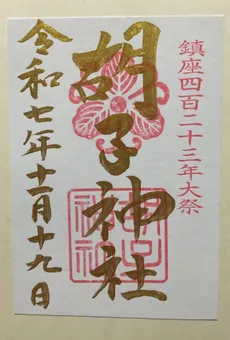 鎮座四百二十三年大祭
胡子神社
令和七年十一月十九日